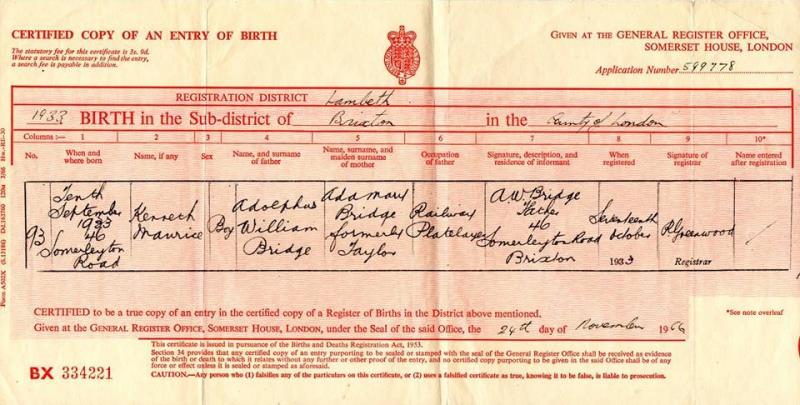 CERTIFIED COPY OF AN ENTRY OF BIRTH
The statutory fee for this certificate is 3s. 9d.
Where a search is necessary to find the entry,
a search fee is payable in addition.
GIVEN AT THE GENERAL REGISTER OFFICE,
SOMERSET HOUSE, LONDON
Application Number 599778
REGISTRATION DISTRICT Lambeth
1933 BIRTH in the Sub-district of Brixton in the County of London
Columns :- 1 2 3 4 5 6 7 8 9 10*
No. When and where born Name, if any Sex Name and surname of father Name, surname, and maiden surname of mother Occupation of father Signature, description, and residence of informant When registered Signature of registrar Name entered after registration
93
Tenth
September
1933
46
Somerleyton
Road
Kenneth
Maurice
Boy
Adolphus
William
Bridge
Ada Mary
Bridge
formerly
Taylor
Railway
Platelayer
A W Bridge
Father
46
Somerleyton Road
Brixton
Seventeenth
October
1933
R Greenwood
Registrar
CERTIFIED to be a true copy of an entry in the certified copy of a Register of Births in the District above mentioned.
*See note overleaf
Given at the GENERAL REGISTER OFFICE, SOMERSET HOUSE, LONDON, under the Seal of the said Office, the 24th day of November 1966
This certificate is issued in pursuance of the Births and Deaths Registration Act, 1953.
Section 34 provides that any certified copy of an entry purporting to be sealed or stamped with the seal of the General Register Office shall be received as evidence
of the birth or death to which it relates without any further or other proof of the entry, and no certified copy purporting to be given in the said Office shall be of any
force or effect unless it is sealed or stamped as aforesaid.
CAUTION.—Any person who (1) falsifies any of the particulars on this certificate, or (2) uses a falsified certificate as true, knowing it to be false, is liable to prosecution.
BX 334221